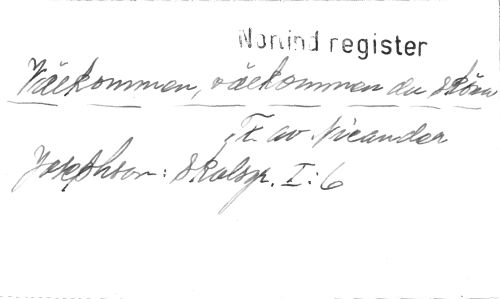 Nonind register
Välkommen, välkommen du sköna
T. av Nicander
Josephson: Skolsgr. I:6